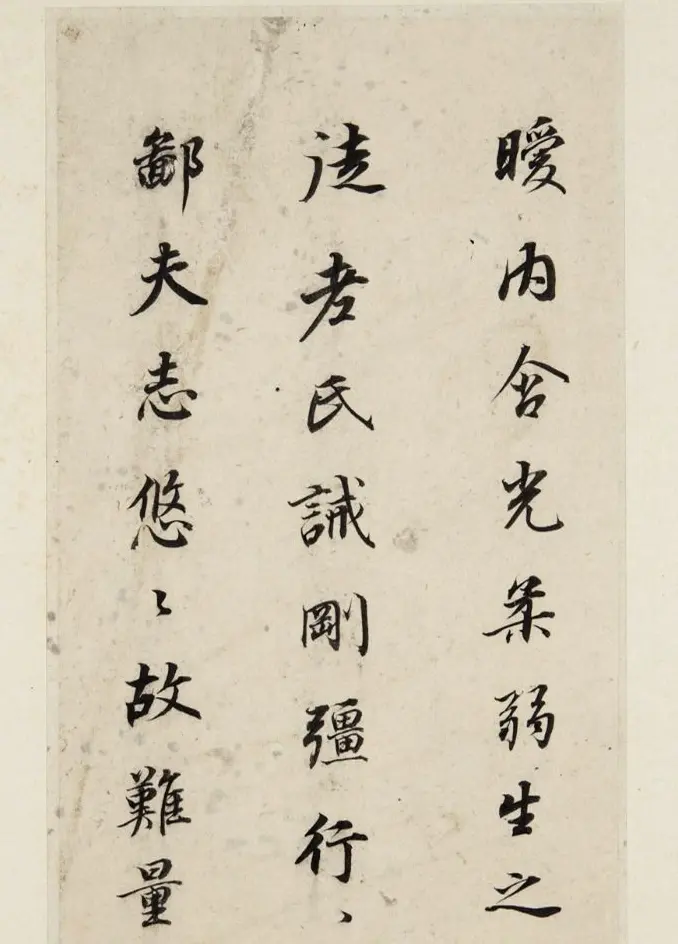 曖内含光柔弱生之
徒老氏誡剛彊行、
鄙夫志悠〻故難量